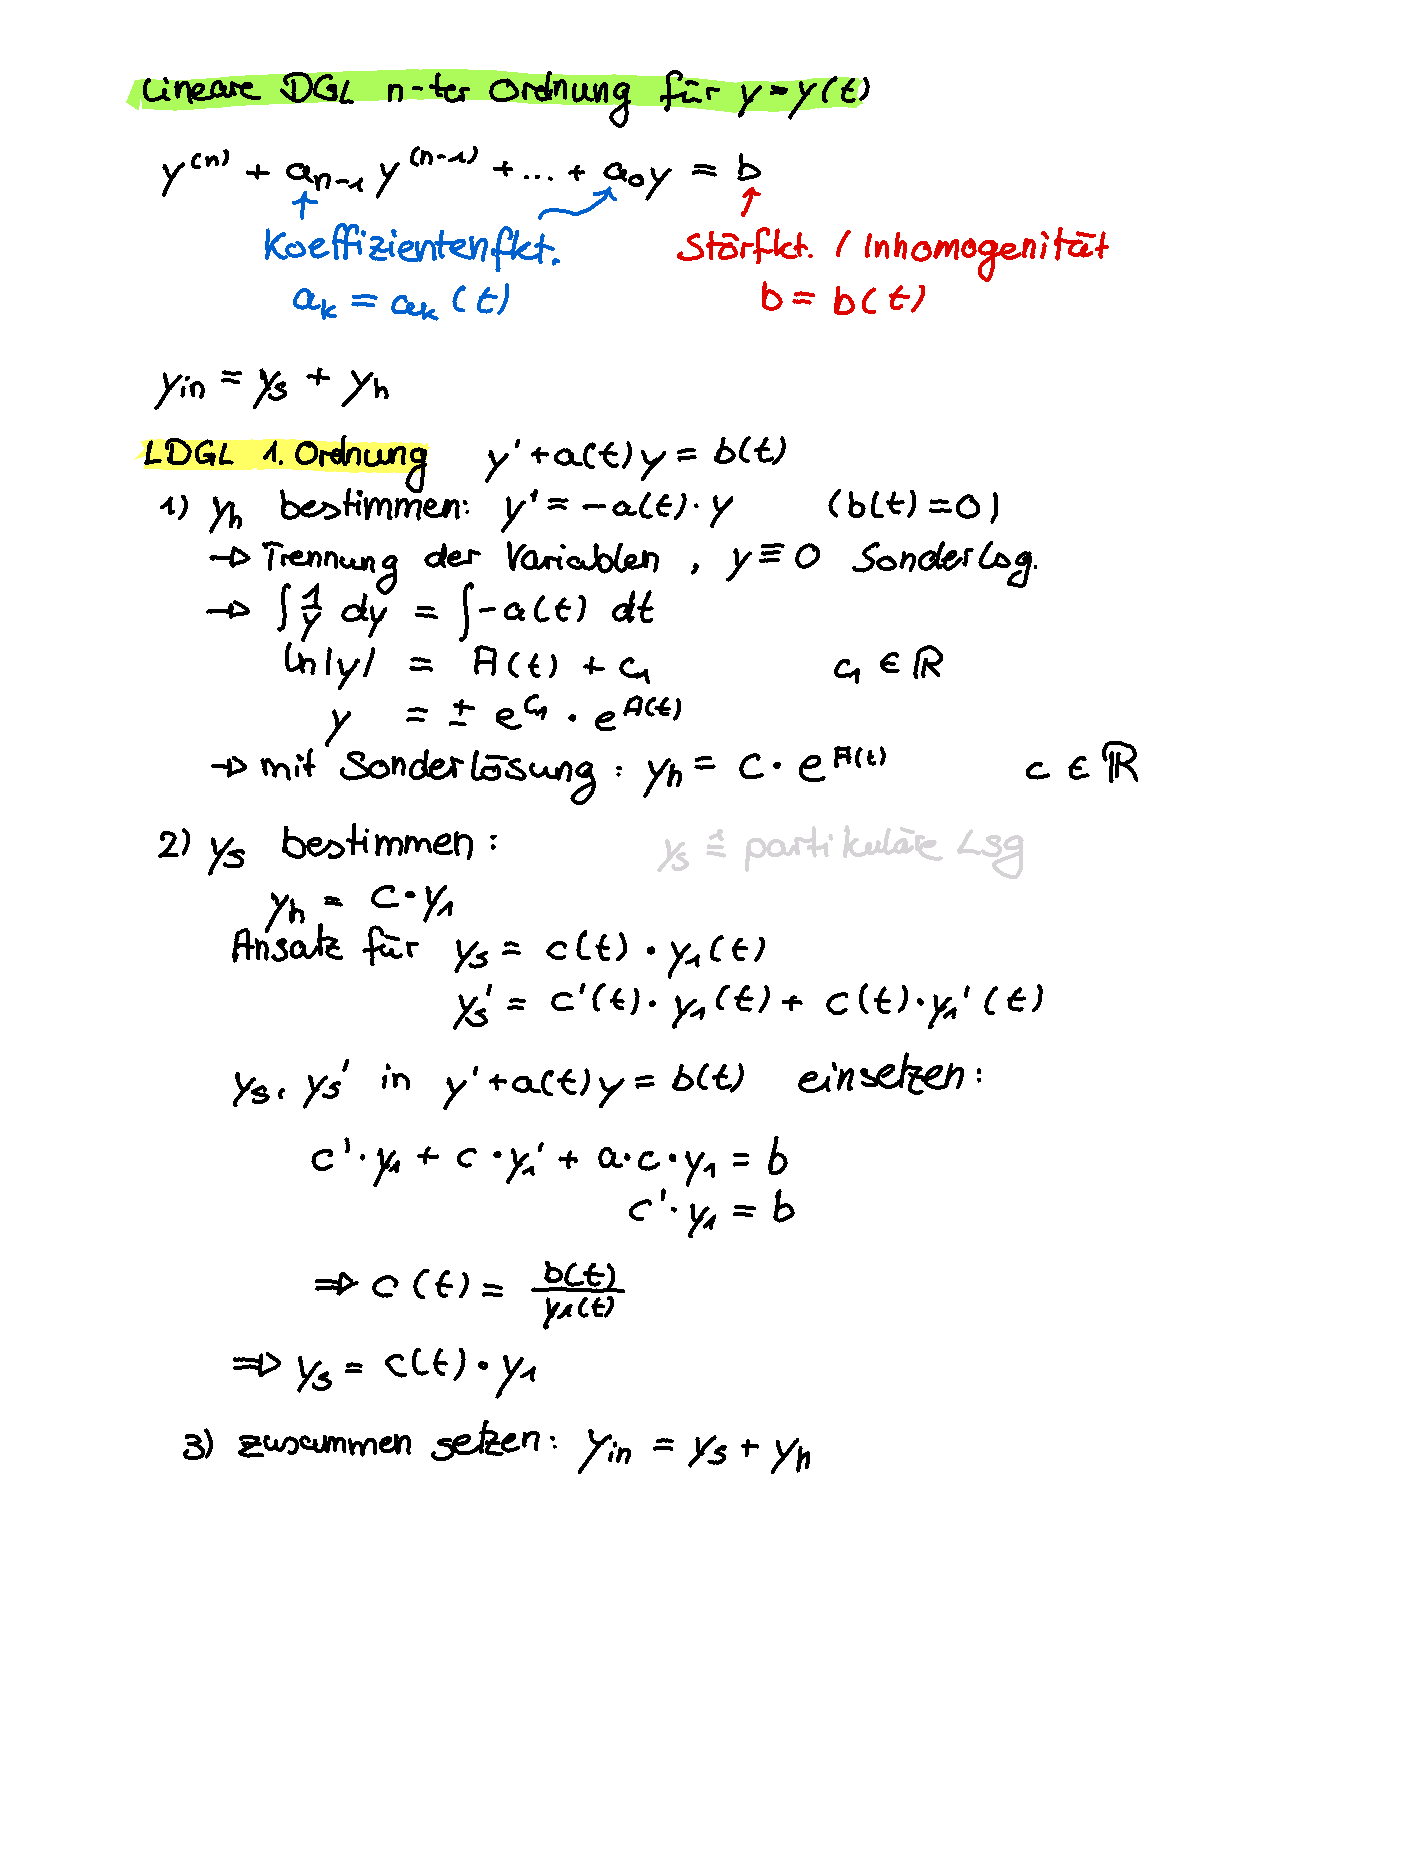 Lineare DGL n-ter Ordnung für y = y(t)
y⁽ⁿ⁾ + aₙ₋₁ y⁽ⁿ⁻¹⁾ + ... + a₀y = b
Koeffizientenfkt. Störfkt. / Inhomogenität
aₖ = aₖ(t) b = b(t)
y_in = y_s + y_h
LDGL 1. Ordnung y' + a(t)y = b(t)
1) y_h bestimmen: y' = -a(t)·y (b(t) = 0)
→ Trennung der Variablen, y ≡ 0 Sonderlsg.
→ ∫ 1/y dy = ∫ -a(t) dt
ln|y| = A(t) + c₁ c₁ ∈ ℝ
y = ± e^c₁ · e^A(t)
→ mit Sonderlösung: y_h = c · e^A(t) c ∈ ℝ
2) y_s bestimmen: y_s ≙ partikuläre Lsg
y_h = c·y₁
Ansatz für y_s = c(t) · y₁(t)
y_s' = c'(t)·y₁(t) + c(t)·y₁'(t)
y_s, y_s' in y' + a(t)y = b(t) einsetzen:
c'·y₁ + c·y₁' + a·c·y₁ = b
c'·y₁ = b
⇒ c(t) = b(t)/y₁(t)
⇒ y_s = c(t)·y₁
3) zusammen setzen: y_in = y_s + y_h